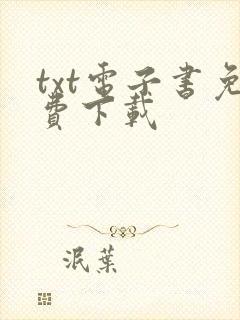 txt电子書免
費下載
泯葉